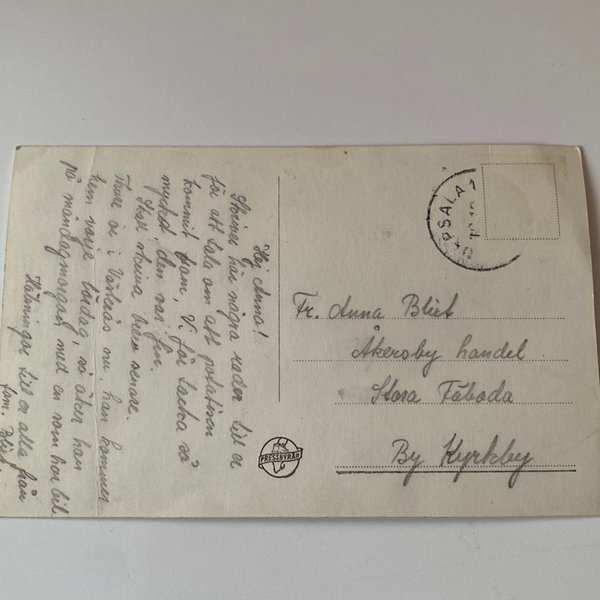 Hej Anna!
Skriver här några rader till er
för att tala om att potatisen
kommit fram, Vi får tacka så
mycket, den var fin.
Skal skriva brev senare.
Thure är i Västerås nu, han kommer
hem varje lördag, så åker han
på måndagmorgon med en som har bil.
Hälsningar till er alla från
fam.
UPSALA
Fr. Anna Bliet
Åkersby handel
Stora Fäboda
By Kyrkby
PRESSBYRÅN